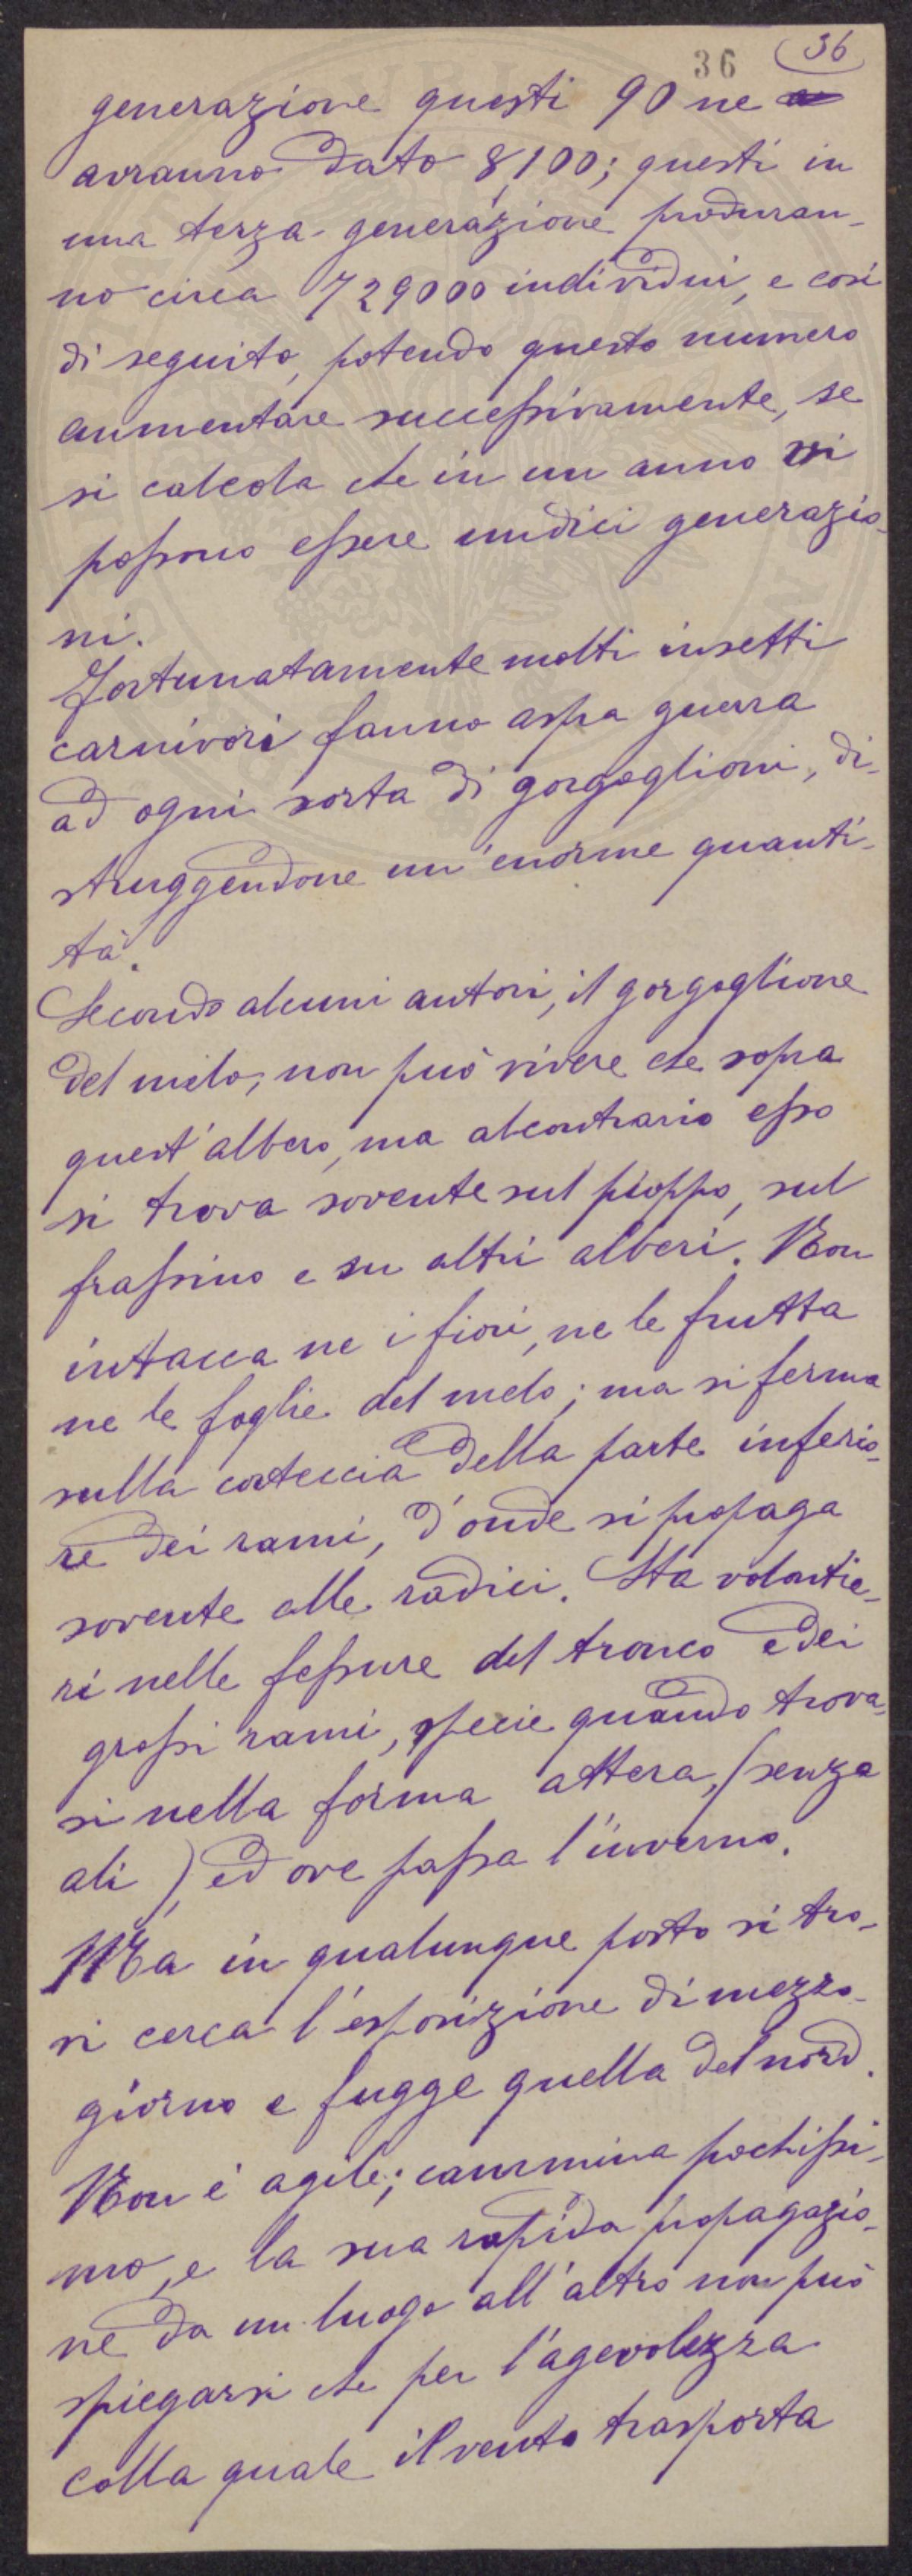 36
36
generazione questi 90 ne
avranno dato 8,100; questi in
una terza generazione produran-
no circa 729000 individui, e così
di seguito, potendo questo numero
aumentare successivamente, se
si calcola che in un anno vi
possono essere undici generazio-
ni.
Fortunatamente molti insetti
carnivori fanno aspra guerra
ad ogni sorta di gorgoglioni, di-
struggendone un'enorme quanti-
tà.
Secondo alcuni autori, il gorgoglione
del melo, non può vivere che sopra
quest'albero, ma al contrario esso
si trova sovente sul pioppo, sul
frassino e su altri alberi. Non
intacca ne i fiori, ne le frutta
ne le foglie del melo; ma si ferma
sulla corteccia della parte inferio-
re dei rami, d'onde si propaga
sovente alle radici. Sta volontie-
ri nelle fessure del tronco e dei
grossi rami, specie quando trova-
si nella forma attera, (senza
ali), ed ove passa l'inverno.
Ma in qualunque posto si tro-
vi cerca l'esposizione di mezzo-
giorno e fugge quella del nord.
Non è agile; cammina pochissi-
mo, e la sua rapida propagazio-
ne da un luogo all'altro non può
spiegarsi che per l'agevolezza
colla quale il vento trasporta